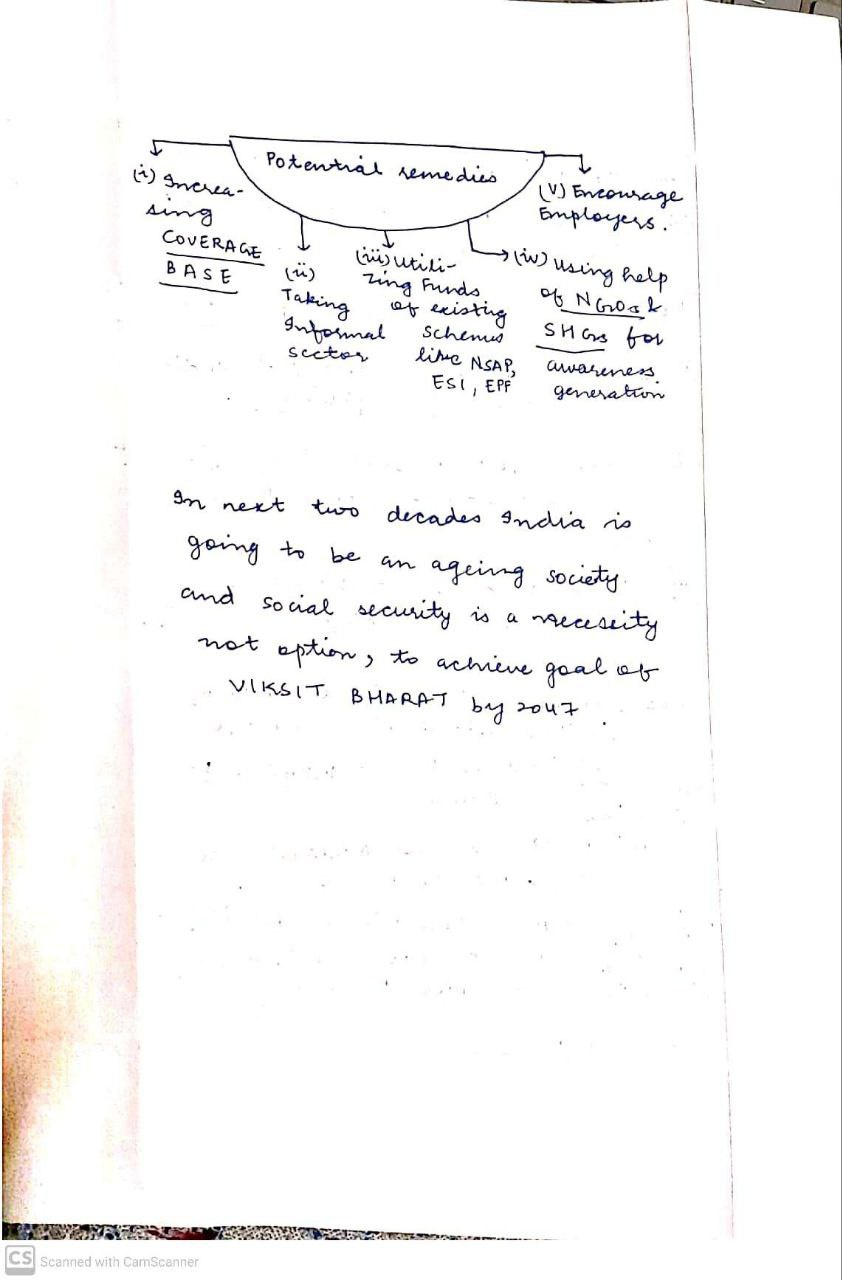 Potential remedies
(i) Increa-
sing
COVERAGE
BASE
(ii)
Taking
Informal
sector
(iii) utili-
zing Funds
of existing
schemes
like NSAP,
ESI, EPF
(iv) using help
of NGOs &
SHGs for
awareness
generation
(v) Encourage
Employers.
In next two decades India is
going to be an ageing society
and social security is a necessity
not option, to achieve goal of
VIKSIT BHARAT by 2047.
CS Scanned with CamScanner